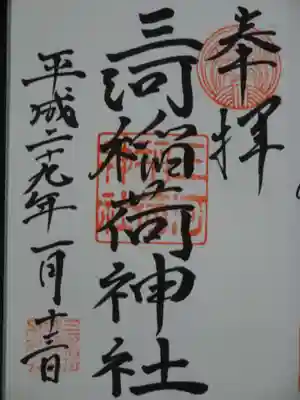 奉拝
三河稲荷神社
平成二十九年一月十三日